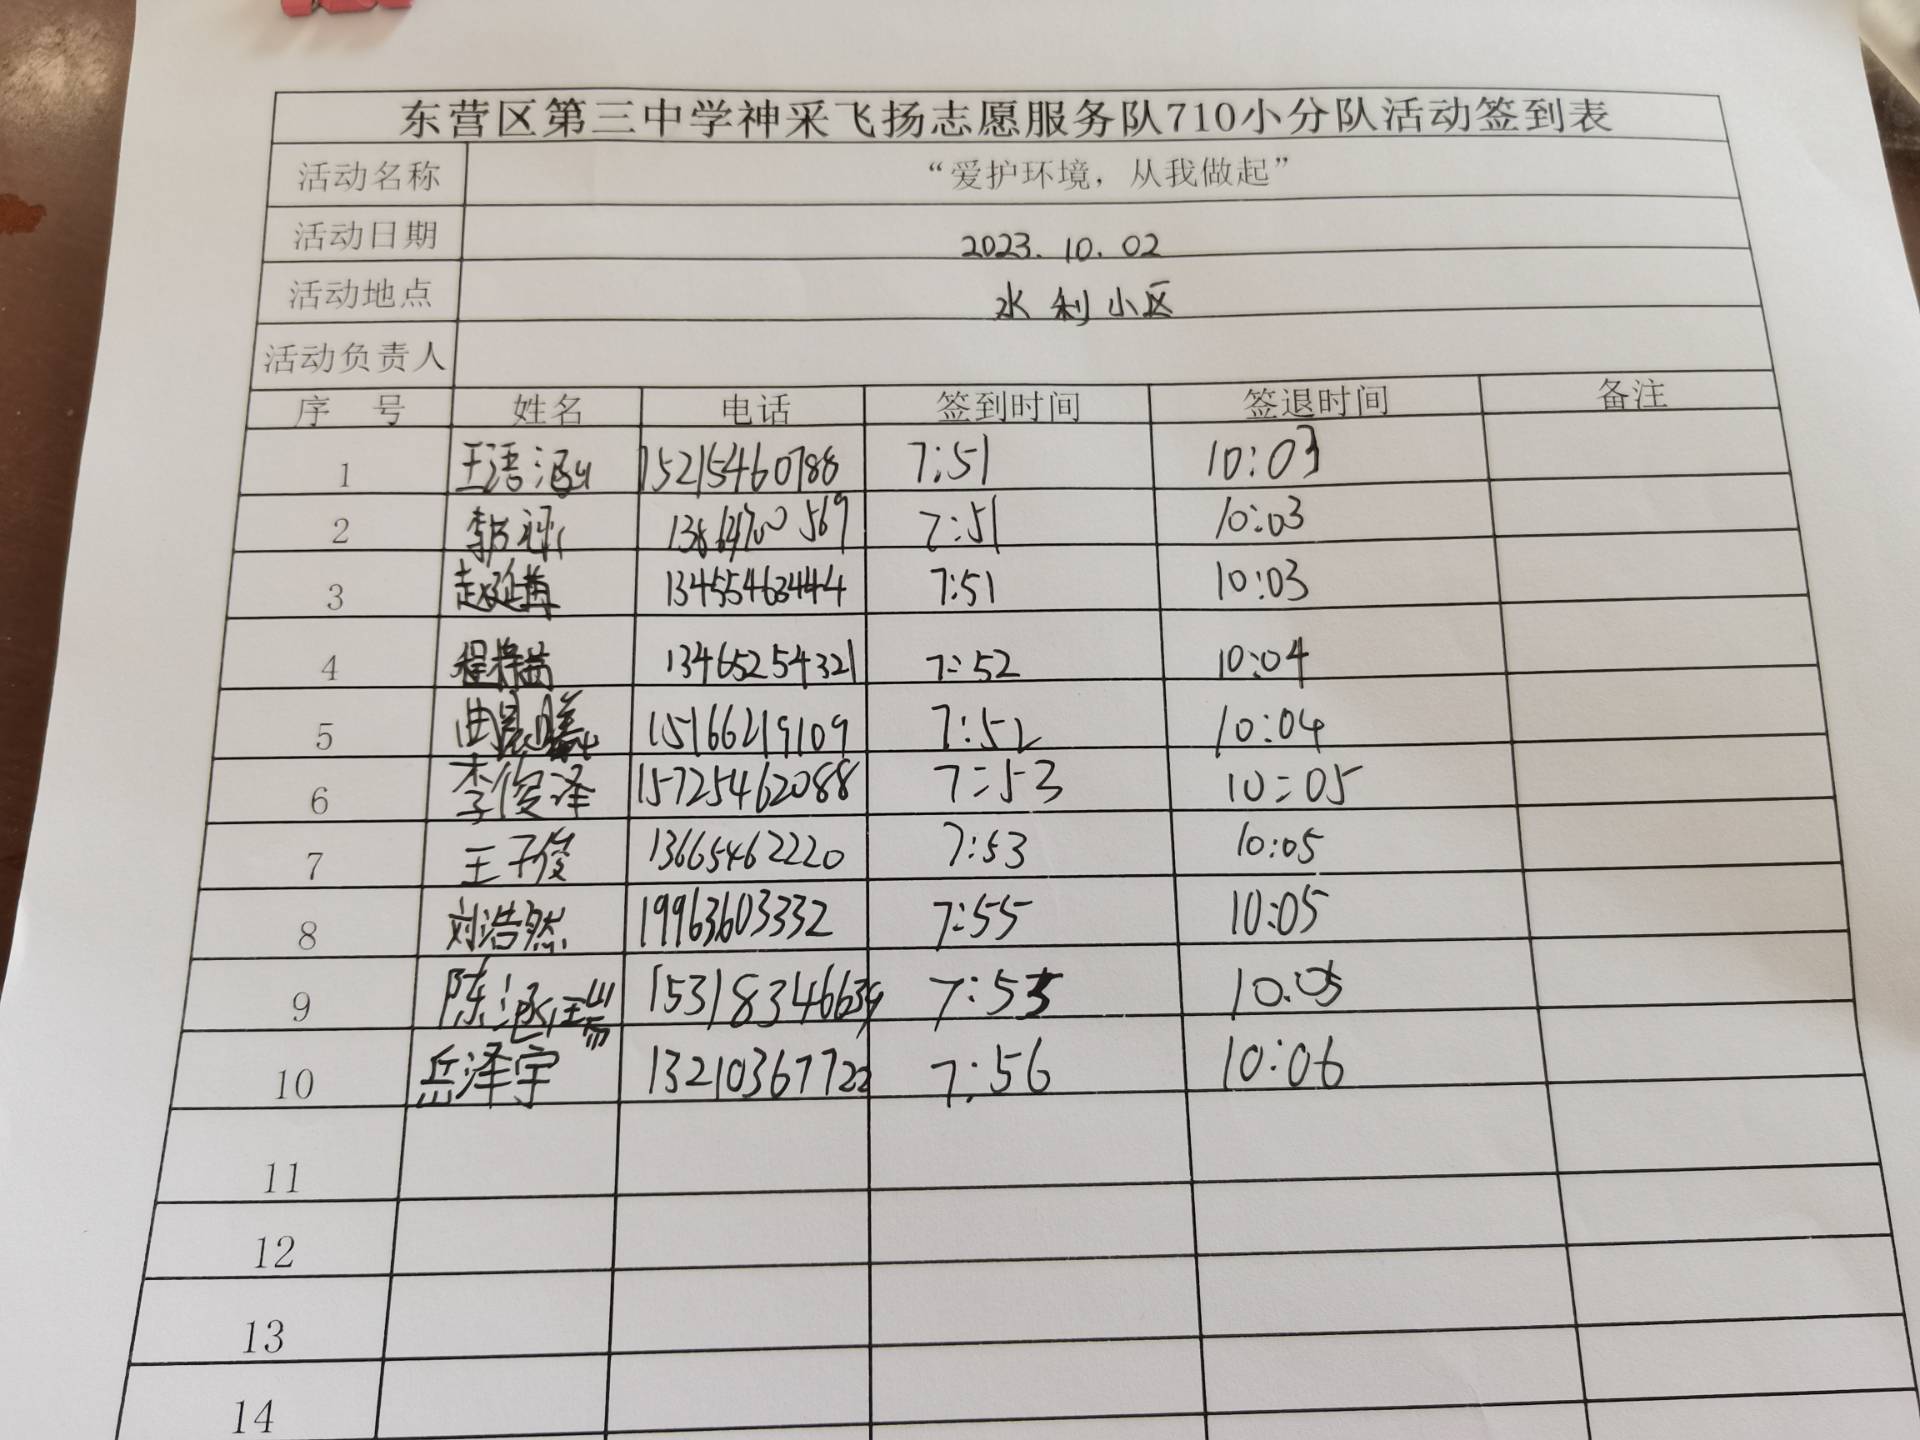 东营区第三中学神采飞扬志愿服务队710小分队活动签到表
活动名称 “爱护环境，从我做起”
活动日期 2023.10.02
活动地点 水利小区
活动负责人
序 号 姓名 电话 签到时间 签退时间 备注
1 王语涵 15215460788 7:51 10:03
2 7:51 10:03
3 赵延 13455463444 7:51 10:03
4 程 13465254321 7:52 10:04
5 曲晨曦 15166219109 7:52 10:04
6 李俊泽 15725462088 7:53 10:05
7 王子俊 13665462220 7:53 10:05
8 刘浩然 19963603332 7:55 10:05
9 陈涵瑞 15318346639 7:55 10:05
10 岳泽宇 13210367722 7:56 10:06
11
12
13
14